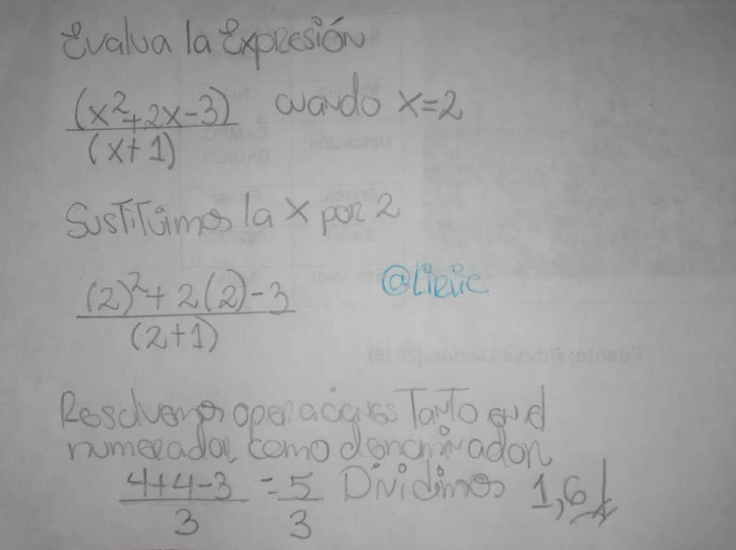 Evalua la Expresión
(x²+2x-3) cuando x=2
(x+1)
Sustituimos la x por 2
(2)²+2(2)-3
(2+1)
@Liriic
Resolvemos operaciones Tanto en el
numerador, como denominador.
4+4-3 = 5 Dividimos 1,6
3 3